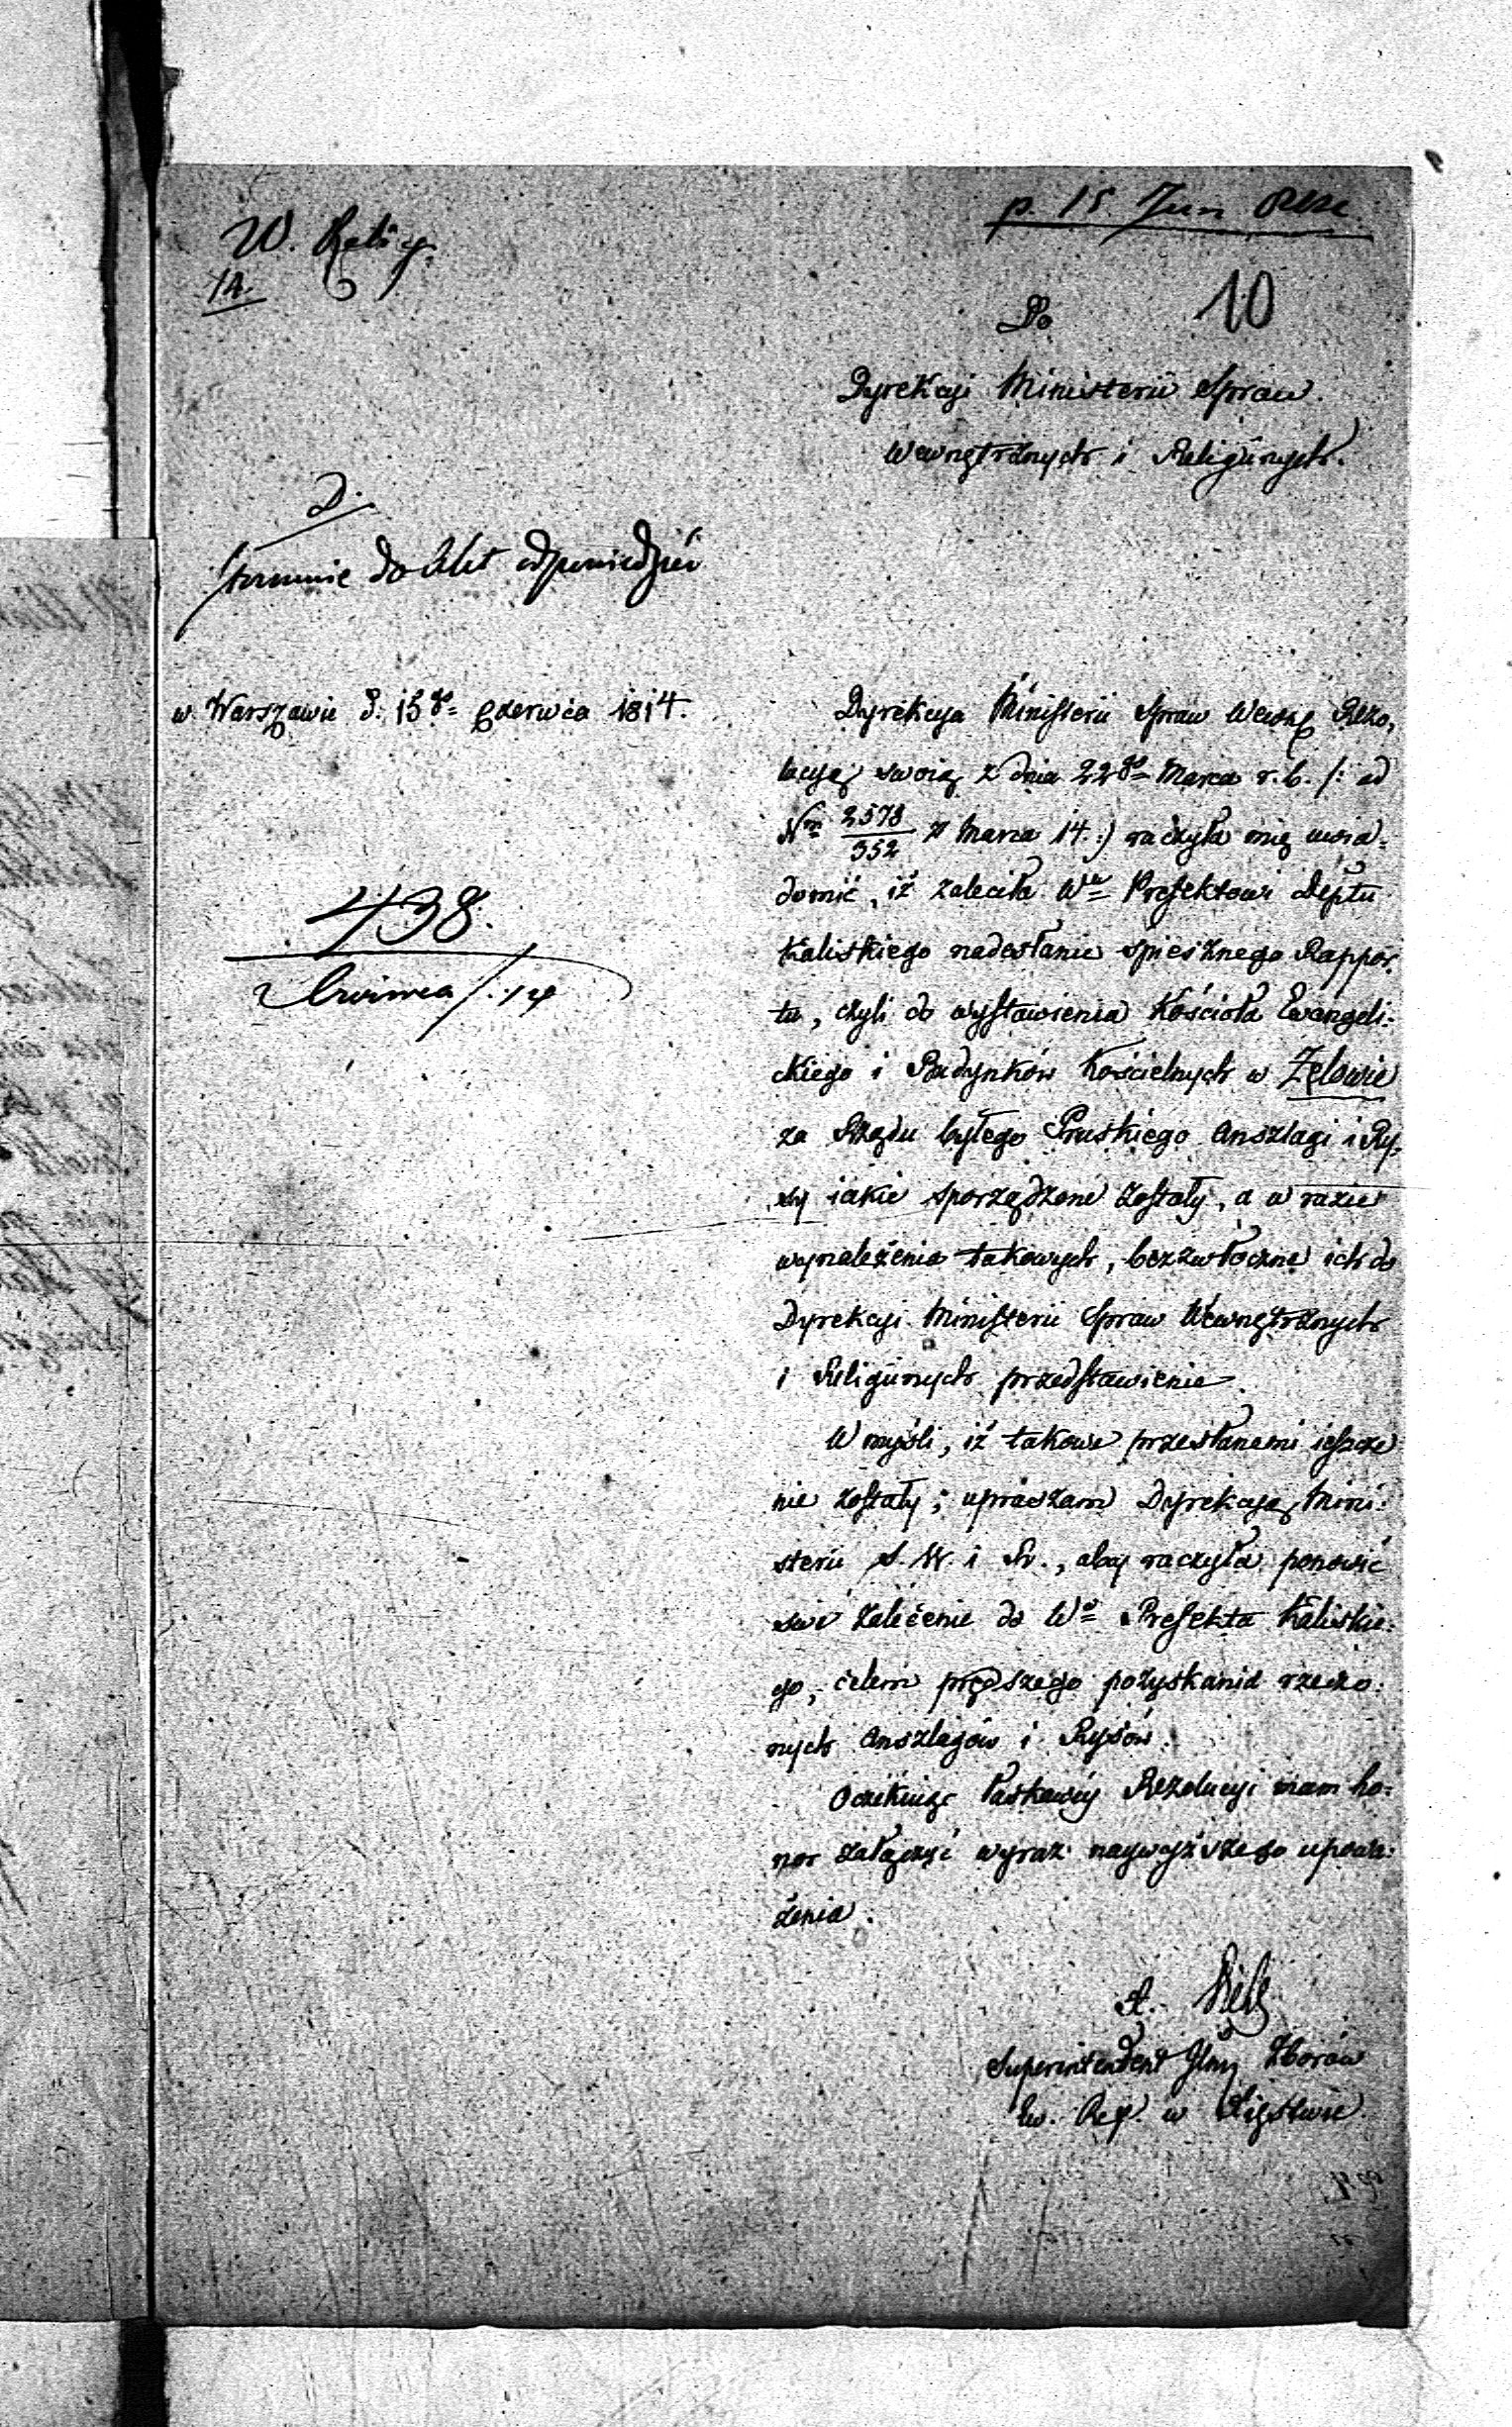 W. Relig.
14.
p. 15 Jun
10
Do
Dyrekcyi Ministerii Spraw
Wewnętrznych i Religijnych.
D.
do Akt odpowiedzieć
w Warszawie d. 15go Czerwca 1814.
438.
Czerwca /.14
Dyrekcya Ministerii Spraw Wewnę Rezo,
lucyą swoią z dnia 22go Marca r. b. /: ad
Nm 2578/352 z Marca 14. :/ raczyła mię uwia-
domić, iż zaleciła Wu Prefektowi Deptu
Kaliskiego nadesłanie spiesznego Rappor,
tu, czyli do wystawienia Kościoła Ewangeli-
ckiego i Budynków Kościelnych w Zelowie
za Rządu byłego Pruskiego Anszlagi i Ry,
sy iakie sporządzone zostały, a w razie
wynaleźenia takowych, bezzwłoczne ich do
Dyrekcyi Ministerii Spraw Wewnętrznych
i Religijnych przedstawienie.
W myśli, iż takowe przesłanemi ieszcze
nie zostały; upraszam Dyrekcyą Mini-
sterii S. W. i R., aby raczyła ponowić
swe zalecenie do Wo Prefekta Kaliskie-
go, celem prędszego pozyskania rzeczo-
nych Anszlagów i Rysów.
Oczekuiąc łaskawéy Rezolucyi mam ho-
nor załączyć wyraz naywyższego upowa-
żenia.
Superintendent Jlny Zborów
Ew. Ref. w Xięstwie